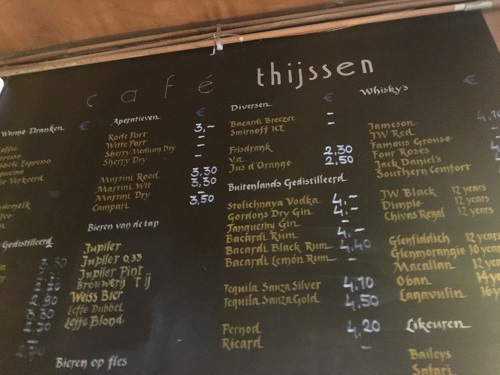 café thijssen
Warme Dranken €
Espresso
Aperatieven €
Rode Port 3,-
Witte Port -
Sherry Medium Dry -
Sherry Dry
Martini Rood 3,30
Martini Wit 3,30
Martini Dry -
Campari 3,50
Bieren van de tap
Jupiler
Jupiler 0,33
Jupiler Pint
Brouwerij 't ij
Weiss Bier
Leffe Dubbel
Leffe Blond
Bieren op fles
Gedistilleerd
Diversen €
Bacardi Breezer -
Smirnoff ICE -
Frisdrank
v.a. 2,30
Jus d'Orange 2,50
Buitenlands Gedistilleerd
Stolichnaya Vodka 4,-
Gordons Dry Gin 4,-
Tanqueray Gin -
Bacardi Rum 4,-
Bacardi Black Rum 4,40
Bacardi Lemon Rum -
Tequila Sanza Silver 4,10
Tequila Sanza Gold 4,50
Pernod 4,20
Ricard -
Whisky's €
Jameson
JW Red
Famous Grouse
Four Roses
Jack Daniel's
Southern Comfort
JW Black 12 years
Dimple 12 years
Chivas Regal 12 years
Glenfiddich 12 years
Glenmorangie 10 years
Macallan 12
Oban 14
Lagavulin 16
Likeuren
Baileys
Safari